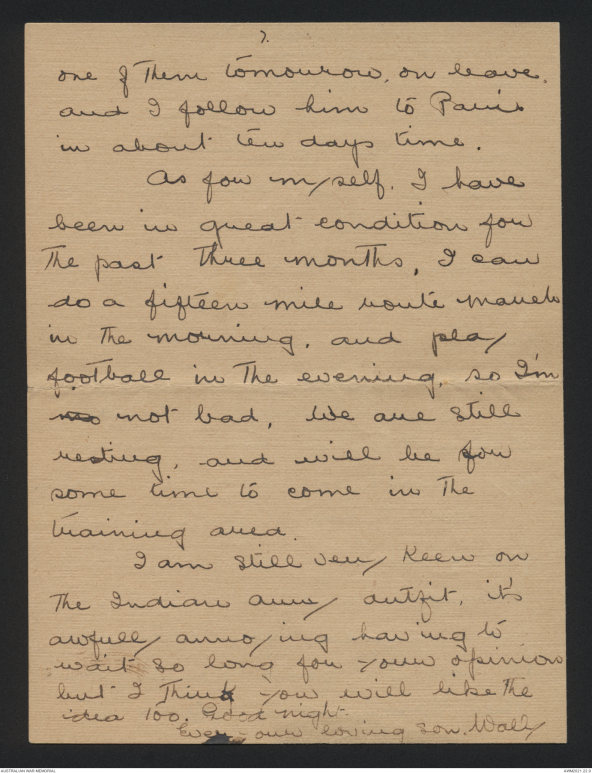 7.
one of them tomorrow, on leave,
and I follow him to Paris
in about ten days time.
As for myself. I have
been in great condition for
the past three months, I can
do a fifteen mile route march
in the morning, and play
football in the evening, so I'm
not bad, We are still
resting, and will be for
some time to come in the
training area.
I am still very keen on
the Indian army outfit, it's
awfully annoying having to
wait so long for your opinion
but I think you will like the
idea too. Good night.
Ever your loving son, Wally
AUSTRALIAN WAR MEMORIAL